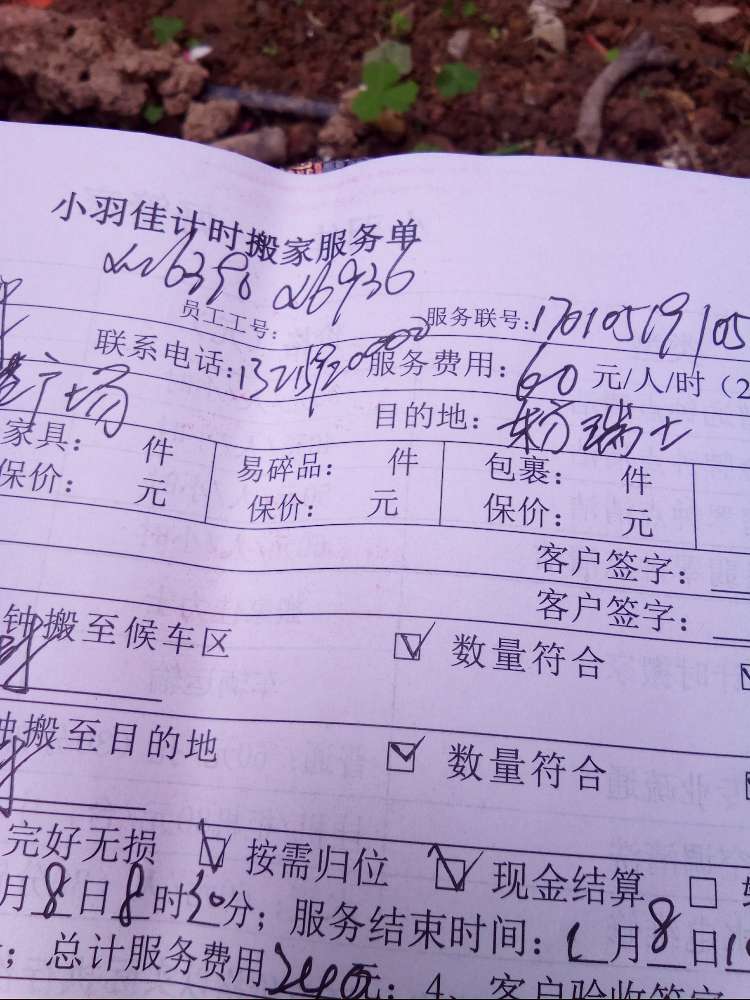 小羽佳计时搬家服务单
员工工号：
服务联号：17010519105
联系电话：
服务费用：60元/人/时（2
广场
目的地：杨瑞士
家具： 件 易碎品： 件 包裹： 件
保价： 元 保价： 元 保价： 元
客户签字：
客户签字：
钟搬至候车 数量符合
钟搬至目的地 数量符合
完好无损 按需归位 现金结算
月8日8时30分；服务结束时间：1月8日10
；总计服务费用240元；4、客户验收签字